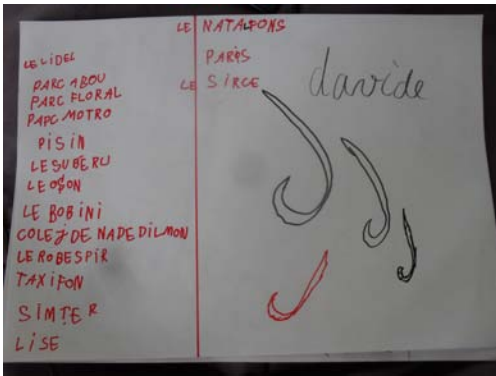 LE LIDEL
PARC ABOU
PARC FLORAL
PAPC MOTRO
PISIN
LE SUBERU
LE OSON
LE BOBINI
COLEJ DE NADEDILMON
LE ROBESPIR
TAXIFON
SIMTER
LISE
LE NATALFONS
PARIS
LE SIRCE
davide